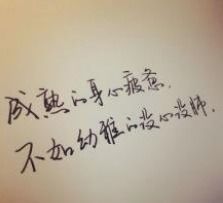 成熟的身心疲惫,
不如幼稚的没心没肺.